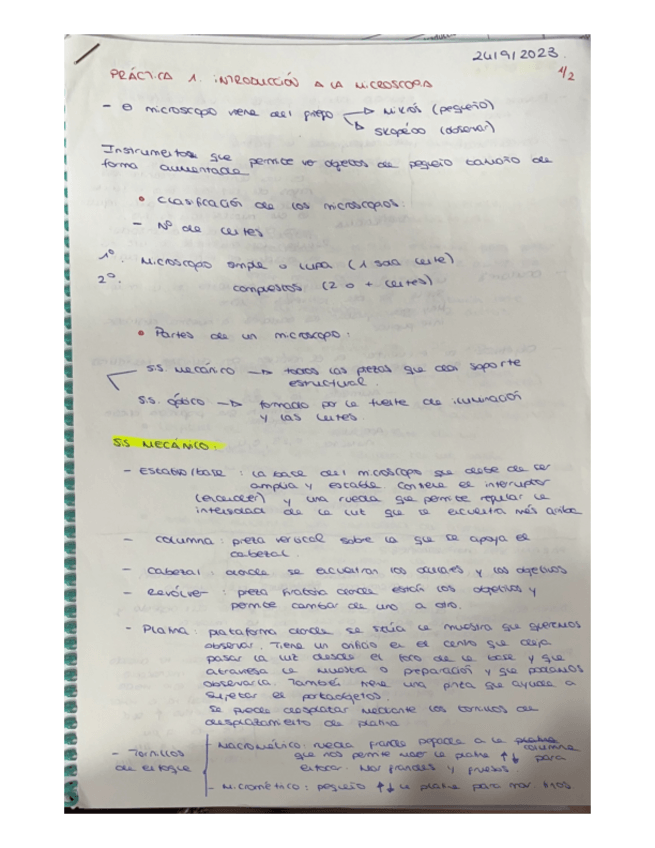 24/9/2023
1/2
PRÁCTICA 1. INTRODUCCIÓN A LA MICROSCOPIA
- microscopio viene del → Mikrós (pequeño)
→ Skopéoo (observar)
Instrumentos que permite ver objetos de pequeño tamaño de
forma aumentada
• Clasificación de los microscopios:
- Nº de lentes
1º. Microscopio simple o lupa (1 sola lente)
2º. compuestos (2 o + lentes)
• Partes de un microscopio:
S.S. Mecánico → todas las piezas que dan soporte
estructural.
S.S. óptico → formado por la fuente de iluminación
y las lentes.
S.S MECÁNICO:
- Estativo/base : La base del microscopio que debe de ser
amplia y estable. Contiene el interruptor
(encender) y una rueda que permite regular la
intensidad de la luz que se encuentra más arriba
- Columna : pieza vertical sobre la que se apoya el
cabezal.
- Cabezal : donde se encuentran los oculares y los objetivos
- Revólver : pieza giratoria donde están los objetivos y
permite cambiar de uno a otro.
- Platina : plataforma donde se sitúa la muestra que queremos
observar. Tiene un orificio en el centro que deja
pasar la luz desde el foco de la base y que
atraviesa la muestra o preparación y que podamos
observarla. También tiene una pinza que ayuda a
sujetar el portaobjetos.
Se puede desplazar mediante los tornillos de
desplazamiento de platina
- Tornillos
de enfoque
- Macrométrico: rueda grande pegada a la platina columna
que nos permite mover la platina ↑↓ para
enfocar. Mov grandes y gruesos.
- Micrométrico : pequeño ↑↓ la platina para mov. finos